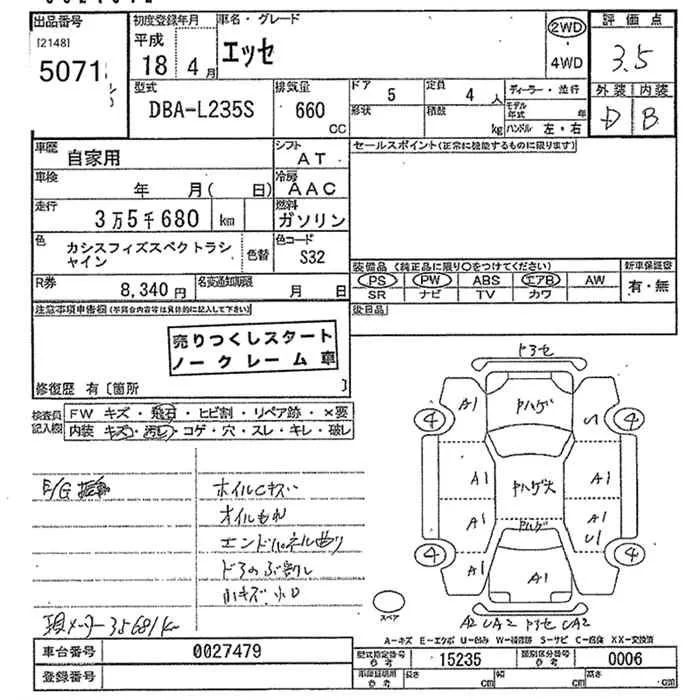 出品番号
[2148]
5071
初度登録年月
平成
18年 4月
車名・グレード
エッセ
2WD
4WD
評価点
3.5
外装 内装
D B
型式
DBA-L235S
排気量
660
CC
ドア
5
形状
定員
4人
積載
kg
ディーラー・並行
モデル年式 年
ハンドル 左・右
車歴
自家用
シフト
AT
車検
年 月( 日)
冷房
AAC
走行
3万5千680 km
燃料
ガソリン
色
カシスフィズスペクトラシャイン
色替
色コード
S32
R券
8,340円
名変通知期限
月 日
セールスポイント(正常に機能するものに限ります)
装備品 (純正品に限り○をつけてください)
新車保証書
PS PW ABS エアB AW
SR ナビ TV カワ
有・無
後日品
注意事項申告欄(不具合内容等は具体的に記入して下さい)
売りつくしスタート
ノークレーム車
修復歴 有〔箇所 〕
検査員記入欄
FW キズ・飛石・ヒビ割・リペア跡・×要
内装 キズ・汚れ・コゲ・穴・スレ・キレ・破レ
E/G
ホイルCキズ
オイルもれ
エンドパネル曲り
ドアのぶ割れ
小キズ 小凹
現メーター 35681km
ドアセ
A1
ヤハゲ
U
4
4
A1
ヤハゲ大
A1
A1
ヤハゲ
A1
U1
4
4
A1
A1
スペア
A2 UA2 ドアセ UA2
A-キズ E-エクボ U-凹み W-補修跡 S-サビ C-腐蝕 XX-交換済
車台番号
0027479
登録番号
型式指定番号
参考
15235
類別区分番号
参考
0006
車庫証明用
参考
長さ cm
幅 cm
高さ cm